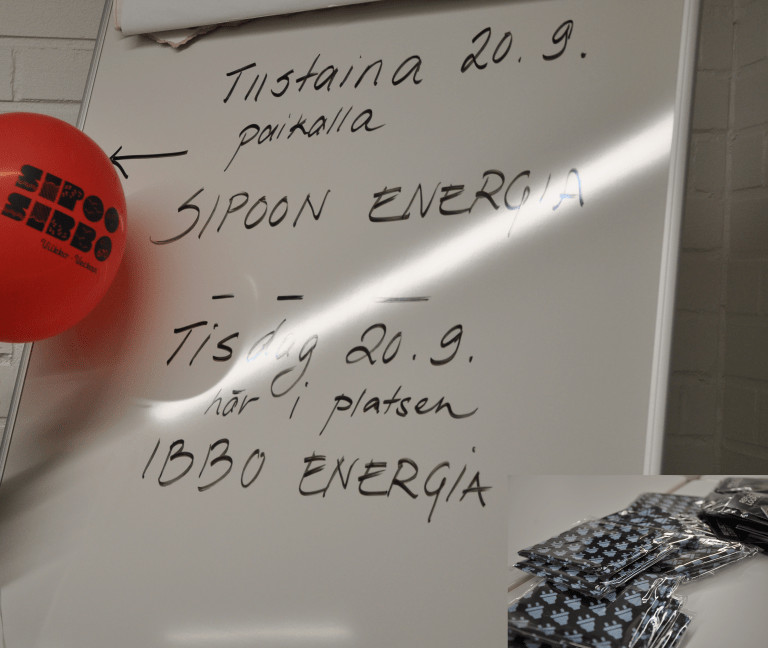 Tiistaina 20.9.
paikalla
SIPOON ENERGIA
Tisdag 20.9.
här i platsen
IBBO ENERGIA
SIPOO
SIBBO